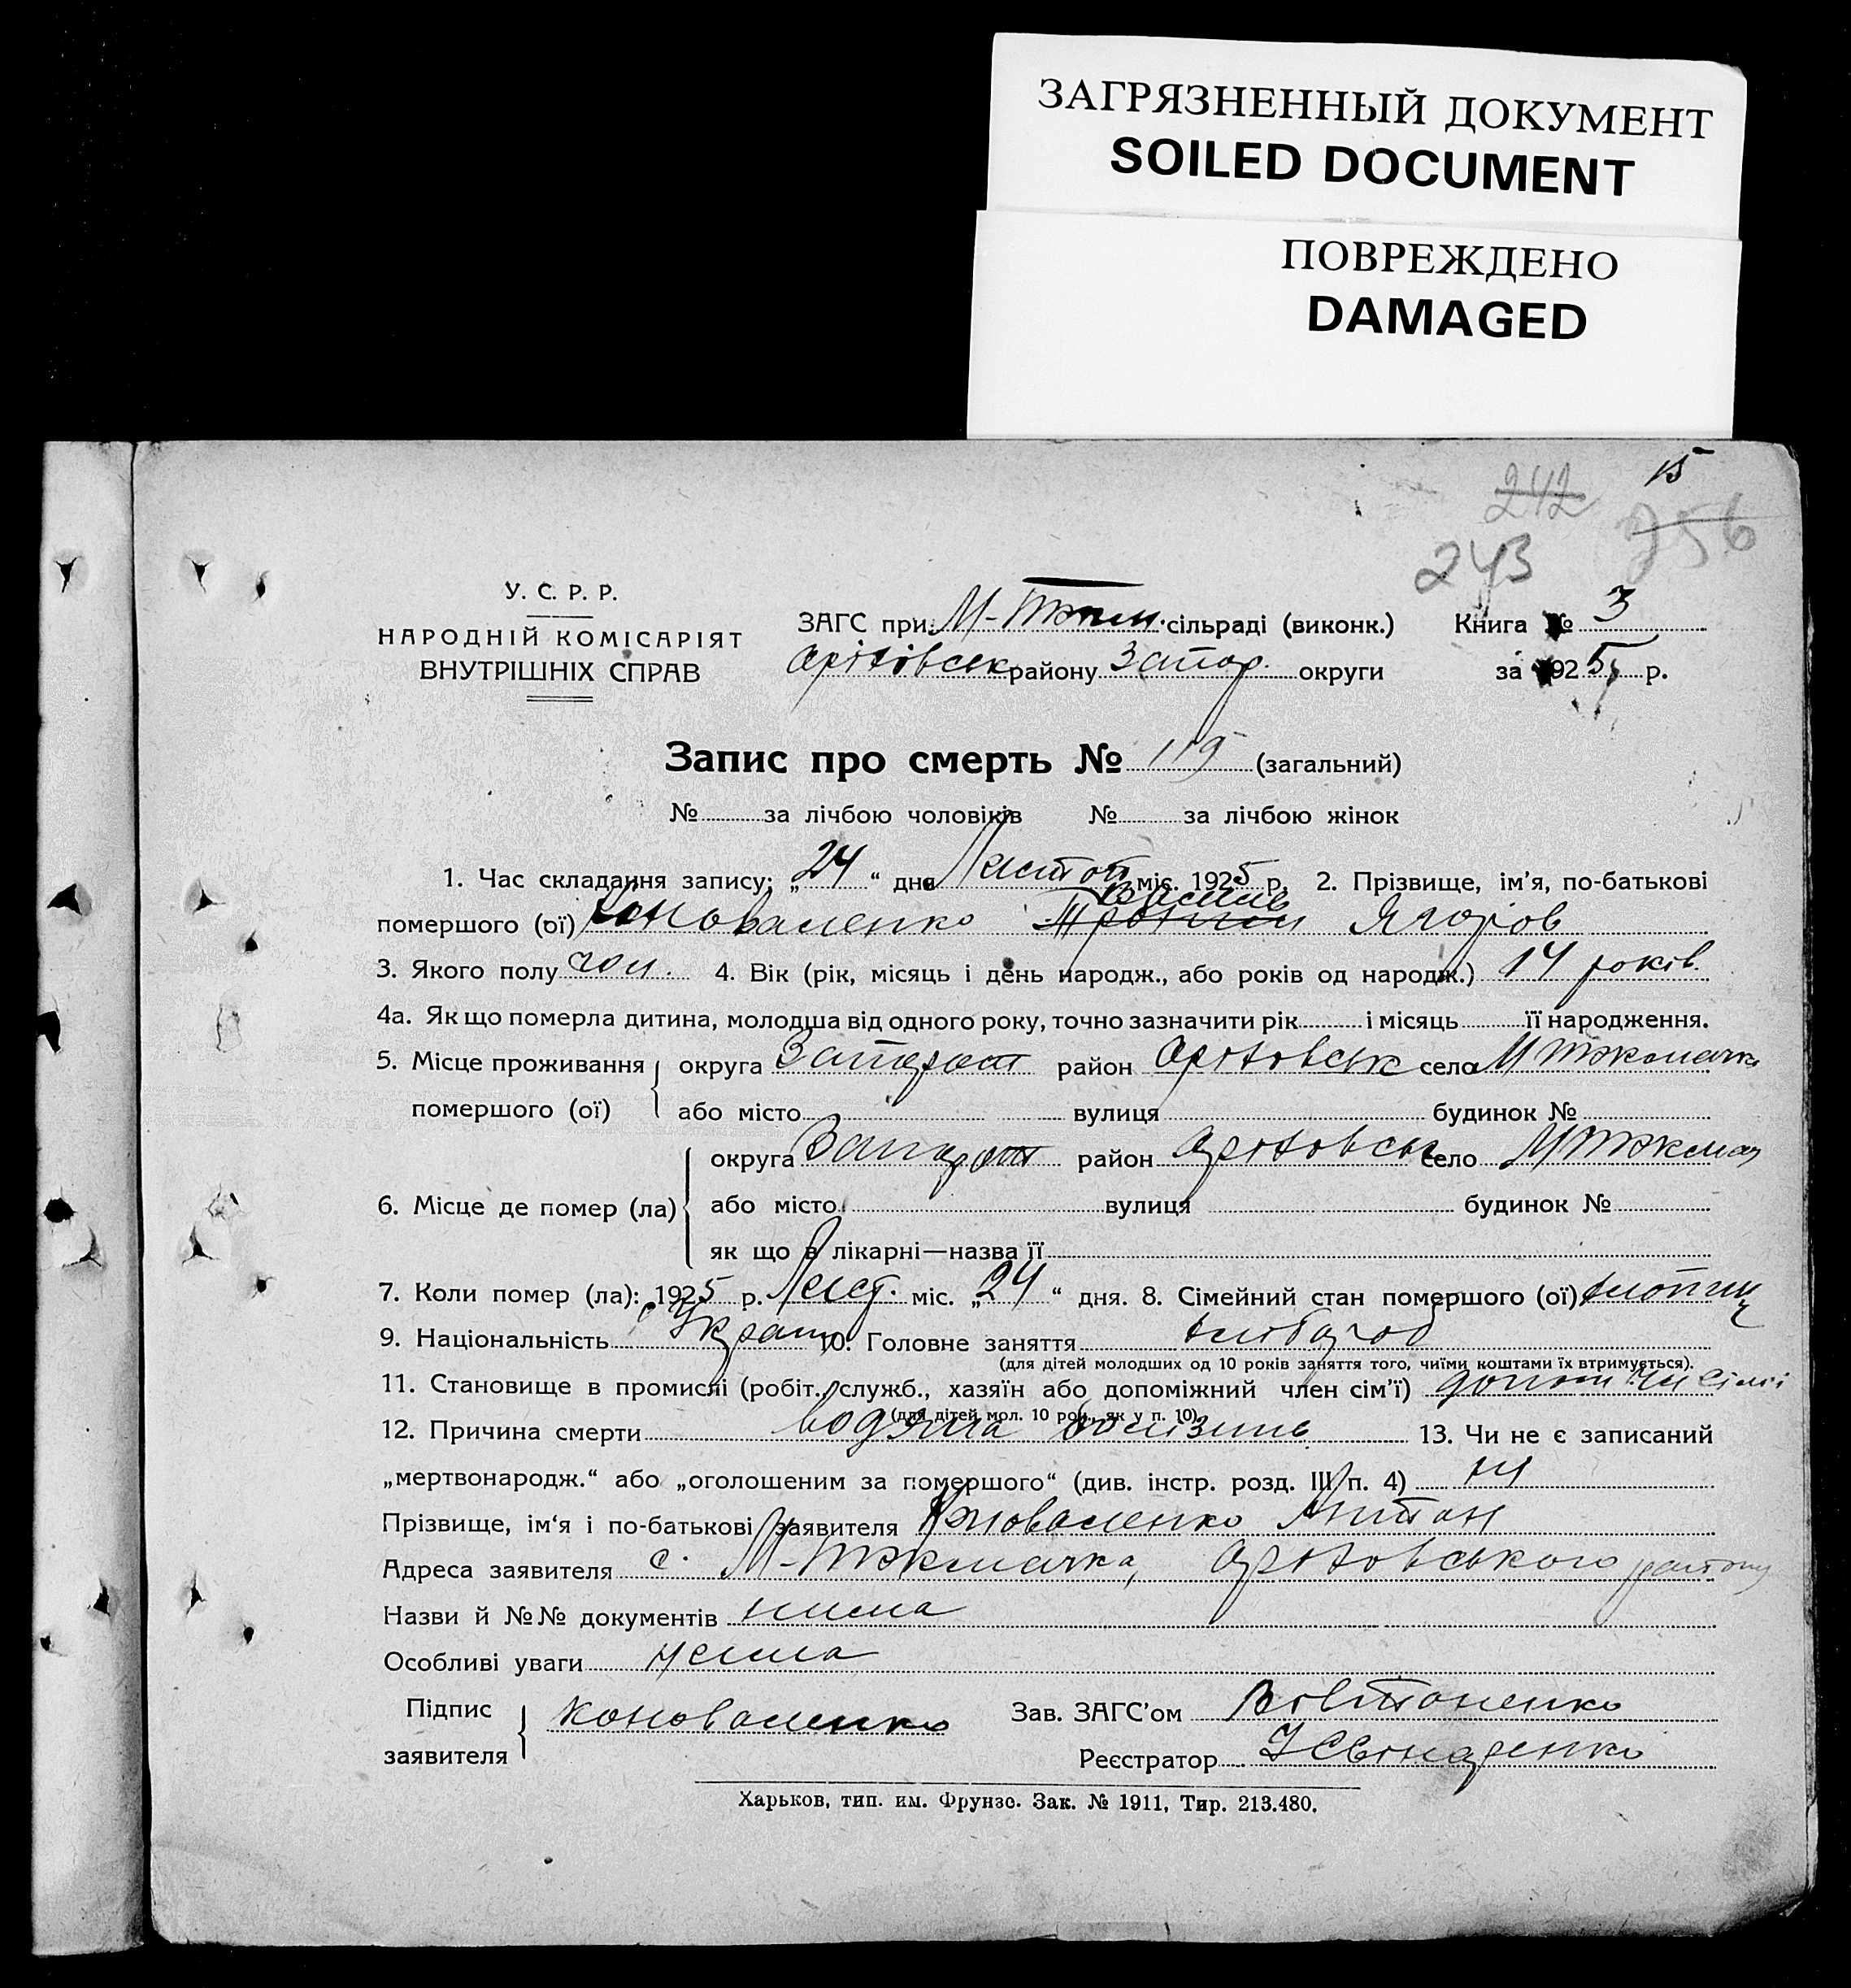 ЗАГРЯЗНЕННЫЙ ДОКУМЕНТ
SOILED DOCUMENT
ПОВРЕЖДЕНО
DAMAGED
15
242 256
243
У. С. Р. Р.
НАРОДНІЙ КОМІСАРІЯТ
ВНУТРІШНІХ СПРАВ
ЗАГС при М-Токм. сільраді (виконк.) Книга № 3
Оріхівськ району Запор. округи за 1925 р.
Запис про смерть № 119 (загальний)
№ за лічбою чоловіків № за лічбою жінок
1. Час складання запису: „24“ дня Листоп міс. 1925 р. 2. Прізвище, ім'я, по-батькові
помершого (ої) Коноваленко Ягоров
3. Якого полу чол. 4. Вік (рік, місяць і день народж., або років од народж.) 14 років.
4а. Як що померла дитина, молодша від одного року, точно зазначити рік і місяць її народження.
5. Місце проживання помершого (ої) округа Запорот район Оріховськ село М Токмачка
або місто вулиця будинок №
6. Місце де помер (ла) округа Запорот район Оріховськ село М Токмач
або місто вулиця будинок №
як що в лікарні—назва її
7. Коли помер (ла): 1925 р. Лист. міс. „24“ дня. 8. Сімейний стан помершого (ої) хлопчик
9. Національність Украт 10. Головне заняття хлібороб
(для дітей молодших од 10 років заняття того, чиїми коштами їх втримується).
11. Становище в промислі (робіт., служб., хазяїн або допоміжний член сім'ї) допом чл сімі
(для дітей мол. 10 рок., як у п. 10).
12. Причина смерти водяна болізнь 13. Чи не є записаний
„мертвонародж.“ або „оголошеним за помершого“ (див. інстр. розд. III п. 4) ні
Прізвище, ім'я і по-батькові заявителя Коноваленко Антон
Адреса заявителя с. М-Токмачка, Оріховського району
Назви й №№ документів нима
Особливі уваги нема
Підпис заявителя Коноваленко Зав. ЗАГС'ом Вовтоненко
Реєстратор
Харьков, тип. им. Фрунзе. Зак. № 1911, Тир. 213.480.